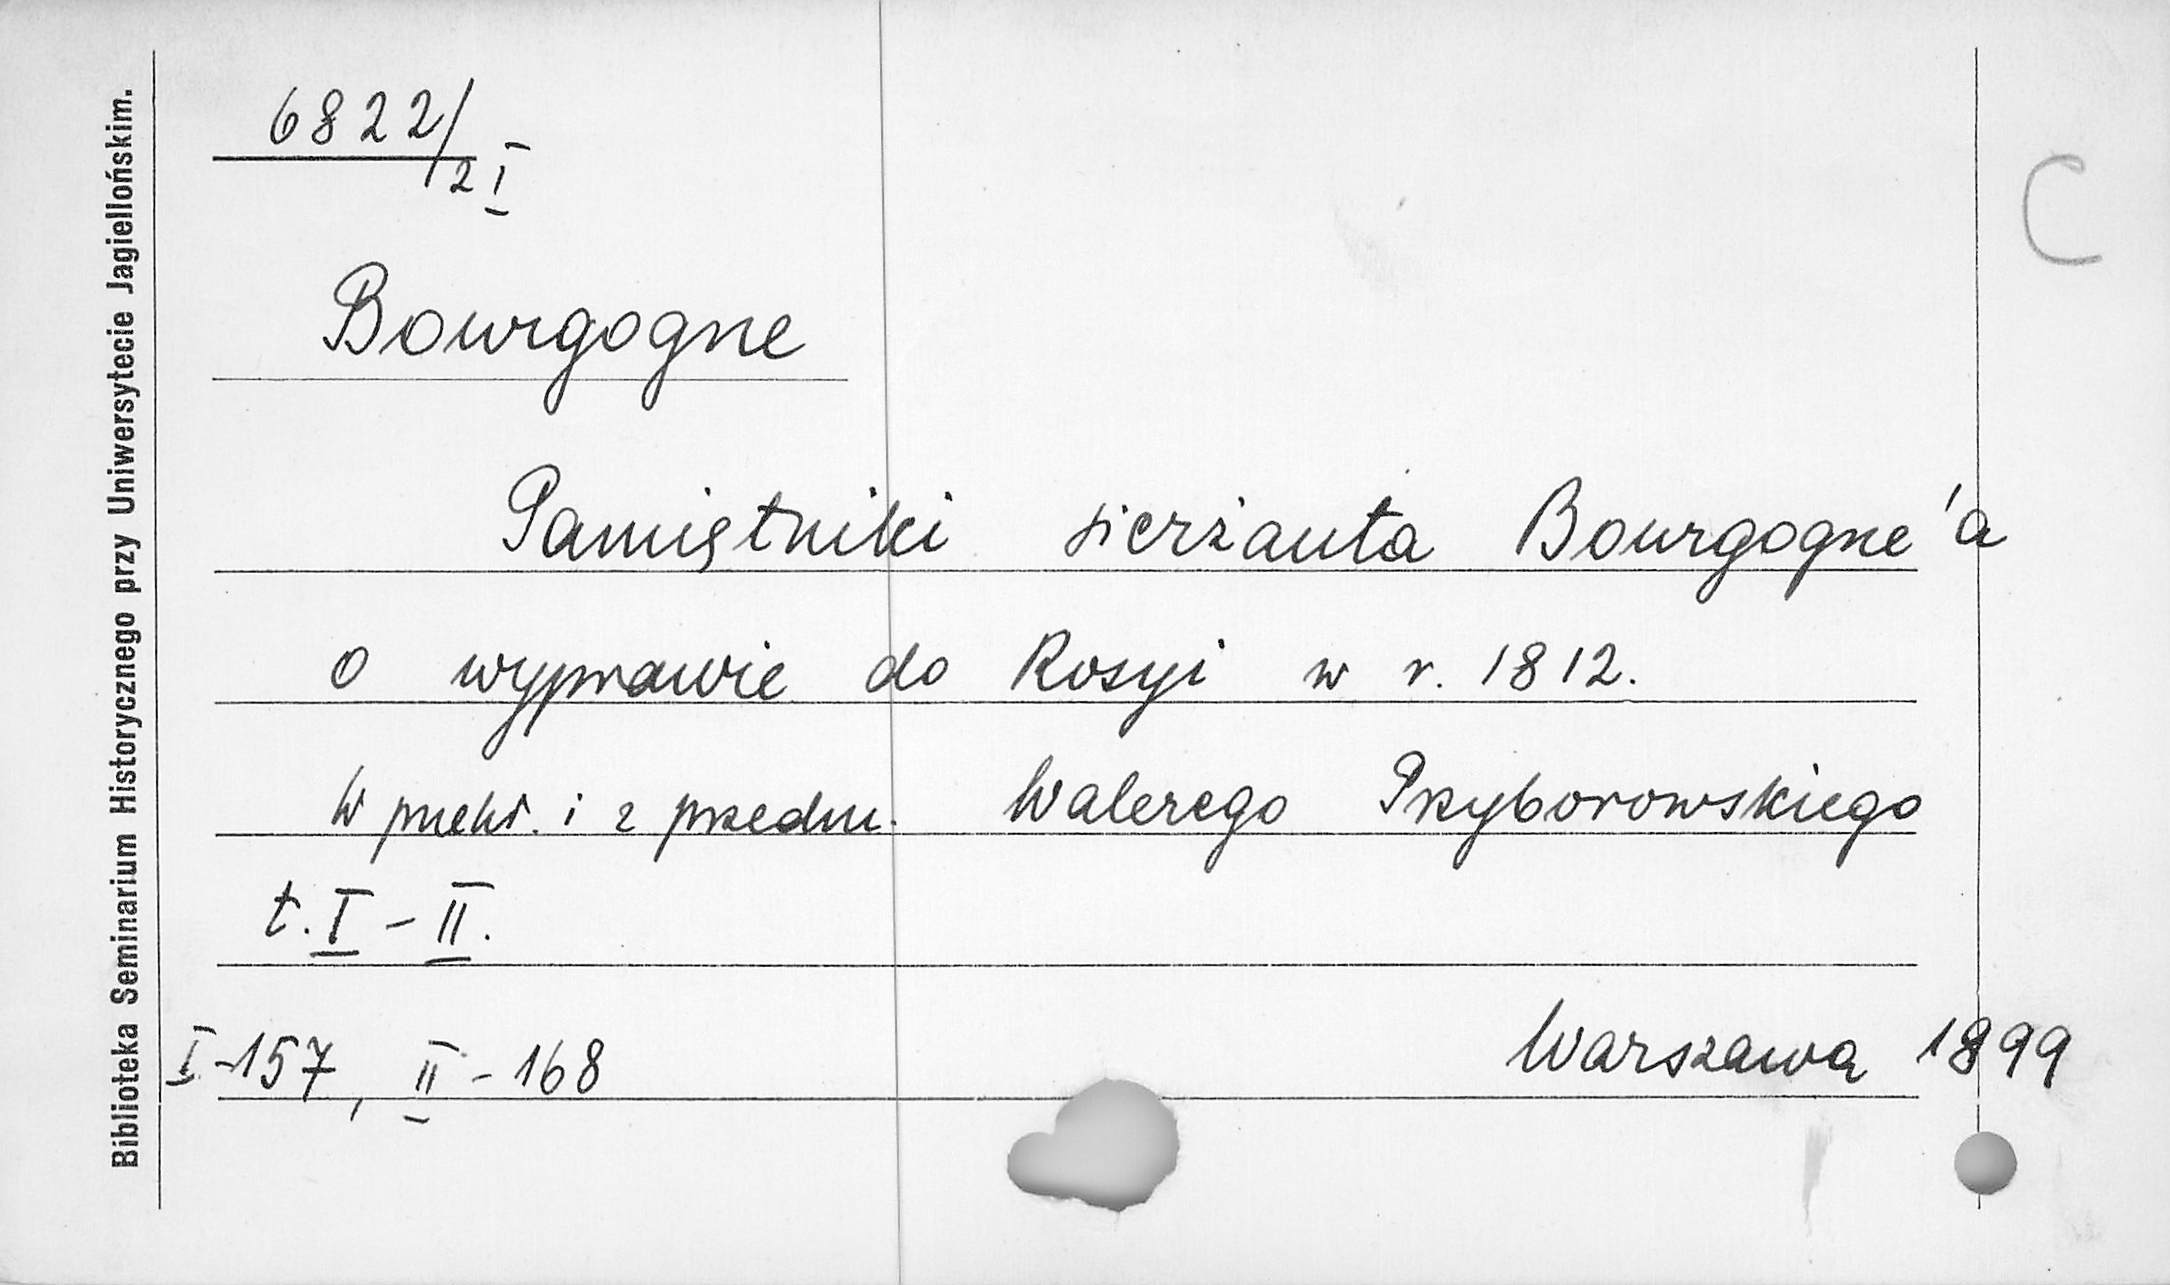 Biblioteka Seminarium Historycznego przy Uniwersytecie Jagiellońskim.
6822/2 I
C
Bourgogne
Pamiętniki sierżanta Bourgogne'a
o wyprawie do Rosyi w r. 1812.
W przekł. i z przedm. Walerego Przyborowskiego
t. I - II.
I - 157, II - 168
Warszawa 1899